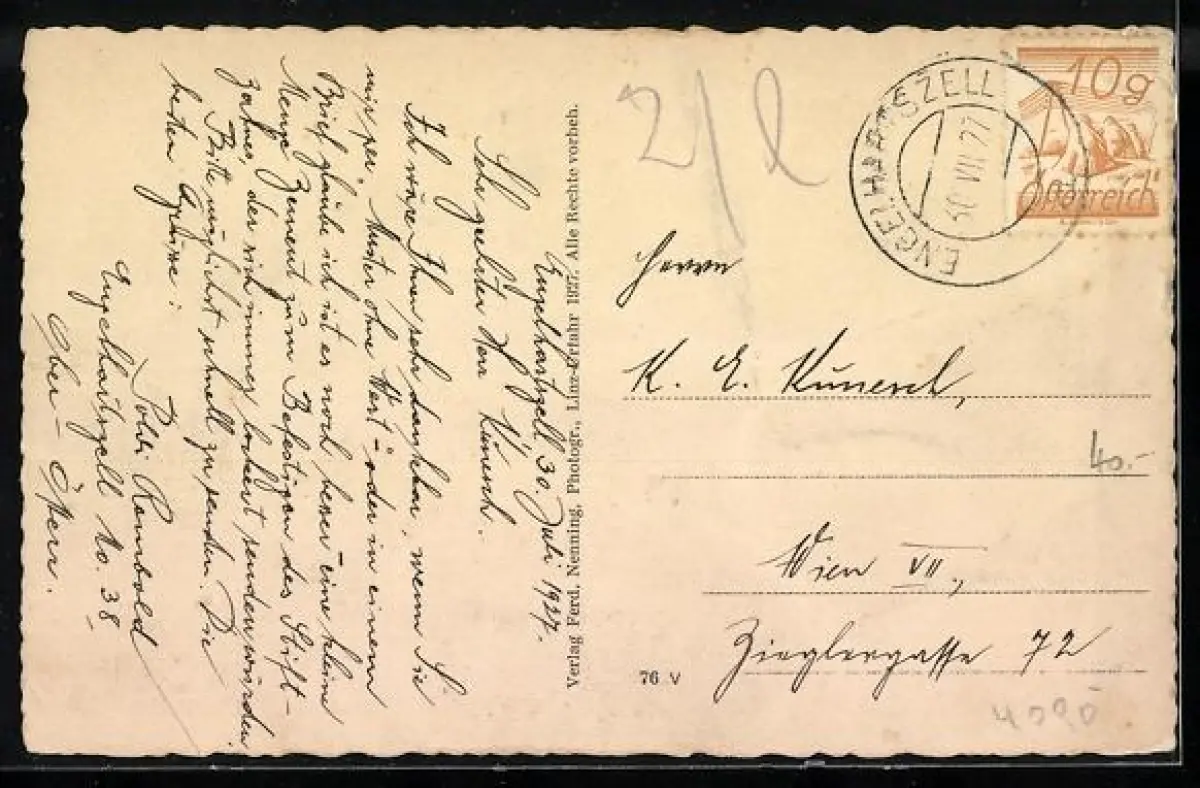 Engelhartszell 30. Juli 1927.
Sehr geehrter Herr Kunesch.
Ich wäre Ihnen sehr dankbar, wenn Sie
mir per „Muster ohne Wert“ oder in einem
Brief glaube ich ist es noch besser eine kleine
Menge Zement zum Befestigen des Stift-
zahnes, der sich immer lockert senden würden.
Bitte möglichst schnell zu senden. Die
besten Grüsse:
Poldi Rambold
Engelhartszell No. 38
Ober-Österr.
Verlag Ferd. Nenning, Photogr., Linz-Urfahr 1927. Alle Rechte vorbeh.
76 V
ENGELHARTSZELL
30 VII 27
10g
Österreich
Herrn
K. E. Kunesch,
40.-
Wien VII,
Zieglergasse 72